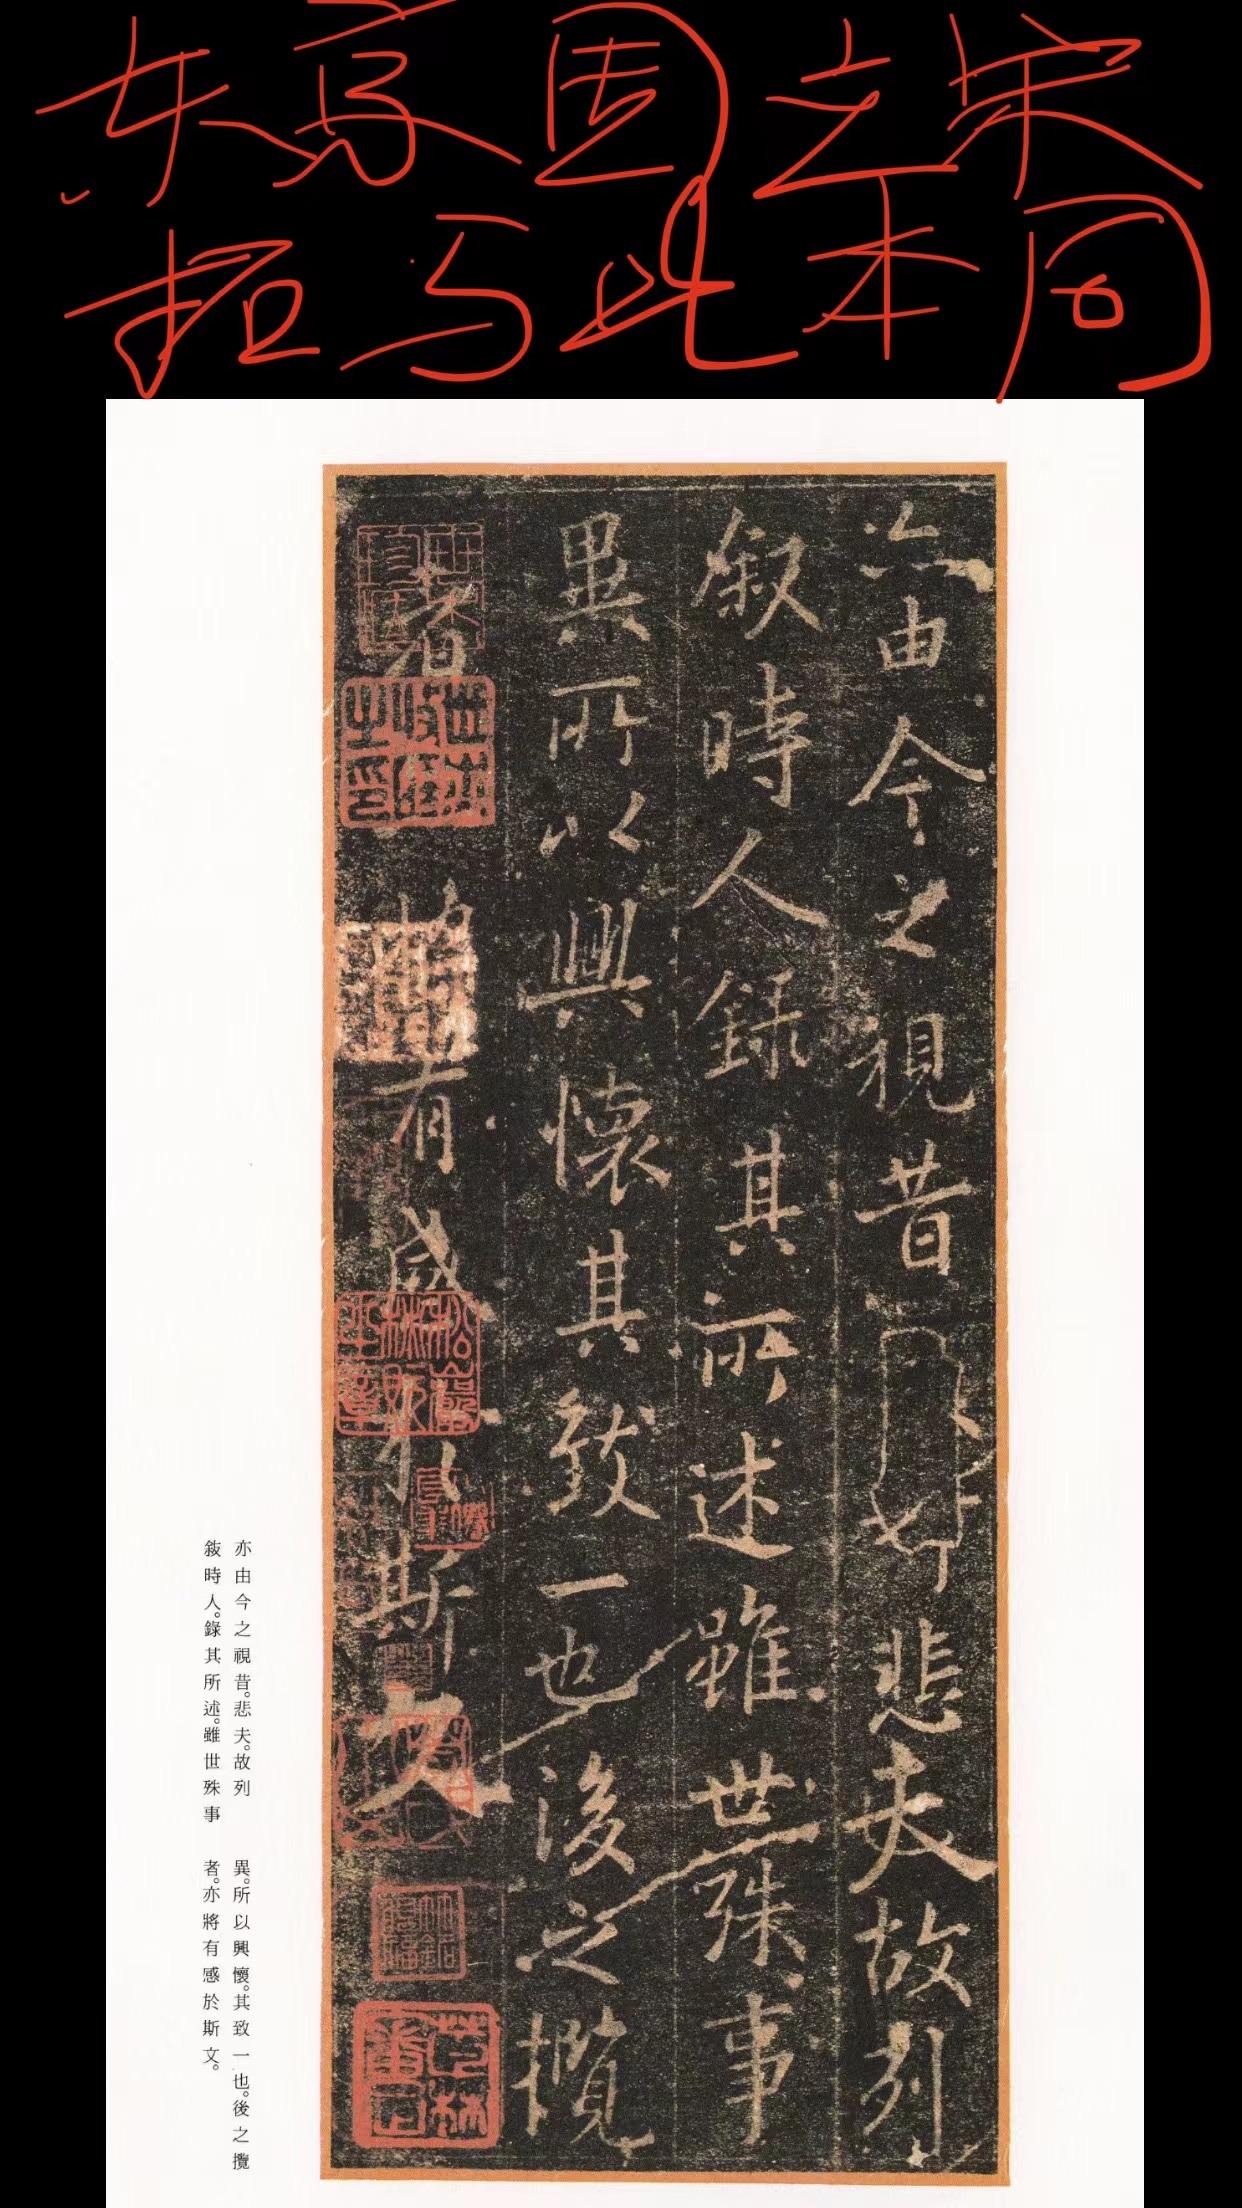 东京国立宋
拓与此本同
亦由今之視昔悲夫故列
叙時人錄其所述雖世殊事
異所以興懷其致一也後之攬
者亦將有感於斯文
亦由今之視昔。悲夫。故列
敍時人。錄其所述。雖世殊事
異。所以興懷。其致一也。後之攬
者。亦將有感於斯文。